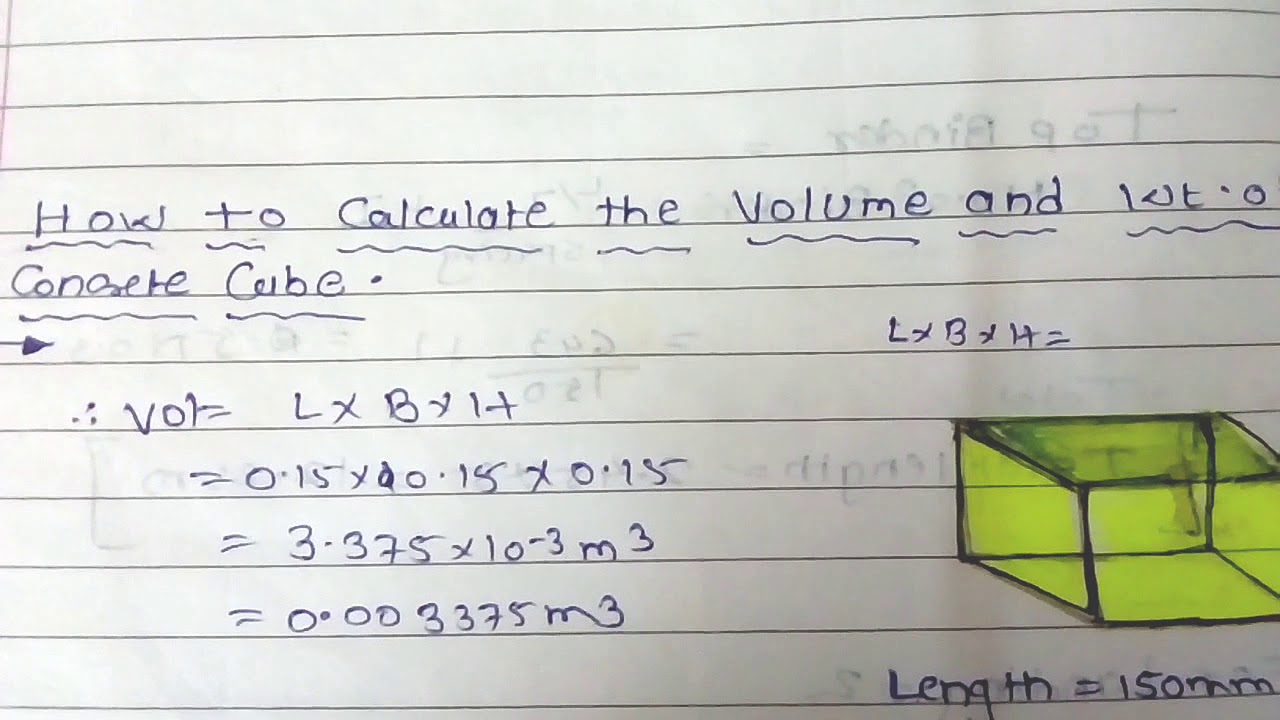 How to Calculate the Volume and wt. o
Concrete Cube.
L x B x H =
∴ Vol = L x B x H
= 0.15 x 0.15 x 0.15
= 3.375 x 10-3 m3
= 0.003375 m3
Length = 150mm